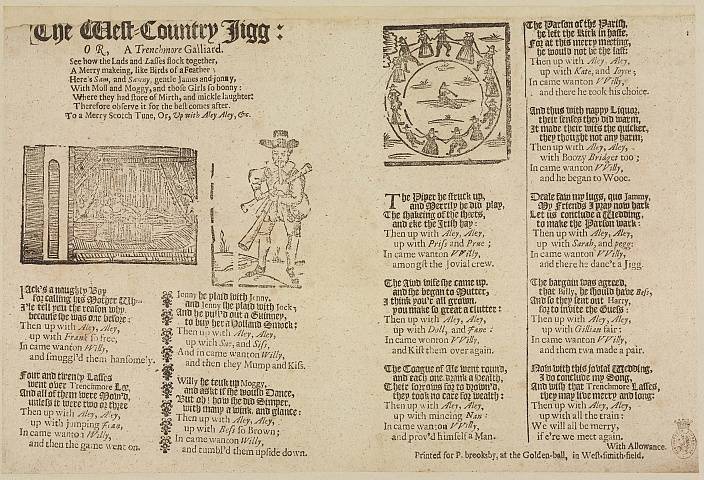 The West-Country Jigg:
OR, A Trenchmore Galliard.
See how the Lads and Lasses flock together,
A Merry makeing, like Birds of a Feather;
Here's Sam, and Sawny, gentle James and Jonny,
With Moll and Moggy, and those Girls so bonny:
Where they had store of Mirth, and mickle laughter:
Therefore observe it for the best comes after.
To a Merry Scotch Tune, Or, Up with Aley Aley, &c.
Jack's a naughty Boy
for calling his Mother Wh--
I'le tell you the reason why,
because she was one before:
Then up with Aley, Aley,
up with Frank so free,
In came wanton Willy,
and smugg'd them hansomely.
Four and twenty Lasses
went over Trenchmore Lee,
And all of them were Mow'd,
unless it were two or three
Then up with Aley, Aley,
up with jumping
In came wanton Willy,
and then the game went on.
Jenny he plaid with Jenny,
and Jenny she plaid with Jock;
And he pull'd out a Guinney,
to buy her a Holland Smock:
Then up with Aley, Aley,
up with Sue, and Siss,
And in came wanton Willy,
and then they Mump and Kiss.
Willy he teuk up Moggy,
and askt if she would Dance,
But oh! how she did Simper,
with many a wink, and glance:
Then up with Aley, Aley,
up with Bess so Brown;
In came wanton Willy,
and tumbl'd them upside down.
The Piper he struck up,
and Merrily he did play,
The shakeing of the sheets,
and eke the Irish hay:
Then up with Aley, Aley,
up with Priss and Prue;
In came wanton VVilly,
amongst the jovial crew.
The Auld wife she came up,
and she began to Mutter,
I think you're all grown,
you make so great a clutter:
Then up with Aley, Aley,
up with Doll, and Jane:
In came wonton VVilly,
and Kist them over again.
The Coague of Ale went round,
and each one drank a Health,
Their sorrows for to drown'd,
they took no care for wealth:
Then up with Aley, Aley,
up with mincing Nan:
In came wanton VVilly,
and prov'd himself a Man.
The Parson of the Parish,
he left the Kirk in haste,
For at this merry meeting,
he would not be the last:
Then up with Aley, Aley,
up with Kate, and Joyce;
In came wanton VVilly,
and there he took his choice.
And thus with nappy Liquor,
their senses they did warm,
It made their wits the quicker,
they thought not any harm;
Then up with Aley, Aley,
with Boozy Bridget too;
In came wanton VVilly,
and he began to Wooe.
Deale faw my lugs, quo Jammy,
My Friends I pray now hark
Let us conclude a Wedding,
to make the Parson wark:
Then up with Aley, Aley,
up with Sarah, and pegg:
In came wanton VVilly,
and there he danc't a Jigg.
The bargain was agreed,
that Billy, he should have Bess,
And so they sent out Harry,
for to invite the Guess:
Then up with Aley, Aley,
up with Gillian fair:
In came wanton VVilly,
and them twa made a pair.
Now with this jovial Wedding,
I do conclude my Song,
And wish that Trenchmore Lasses,
they may live merry and long:
Then up with Aley, Aley,
up with all the train:
We will all be merry,
if e're we meet again.
With Allowance.
Printed for P. brooksby, at the Golden-ball, in West-smith-field.